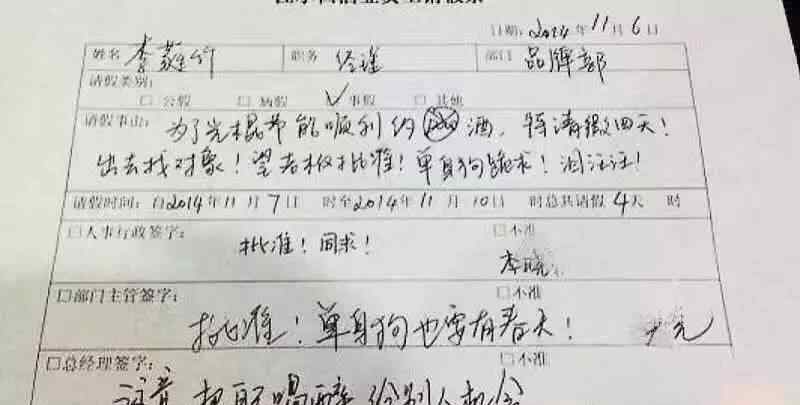 日期: 2014年11月6日
姓名 李 竹 职务 经理 部门 品牌部
请假类别:
□公假 □病假 ✓事假 □其他
请假事由: 为了光棍节能顺利约 酒, 特请假四天!
出去找对象! 望老板批准! 单身狗跪求! 泪汪汪!
请假时间: 自2014年11月7日 时至2014年11月10日 时总共请假4天 时
□人事行政签字: □不准
批准! 同求!
李晓
□部门主管签字: □不准
批准! 单身狗也要有春天!
□总经理签字: □不准
注意 把 喝醉 给别人机会